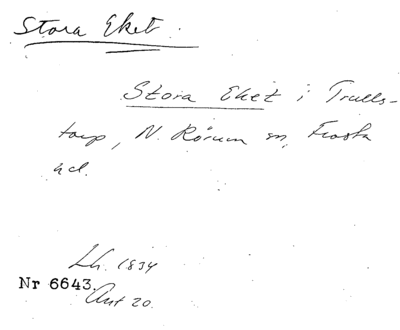 Stora Eket.
Stora Eket i Trulls-
torp, N. Rörum sn, Frosta
hd.
Lh. 1834
Nr 6643.
Ant 20.